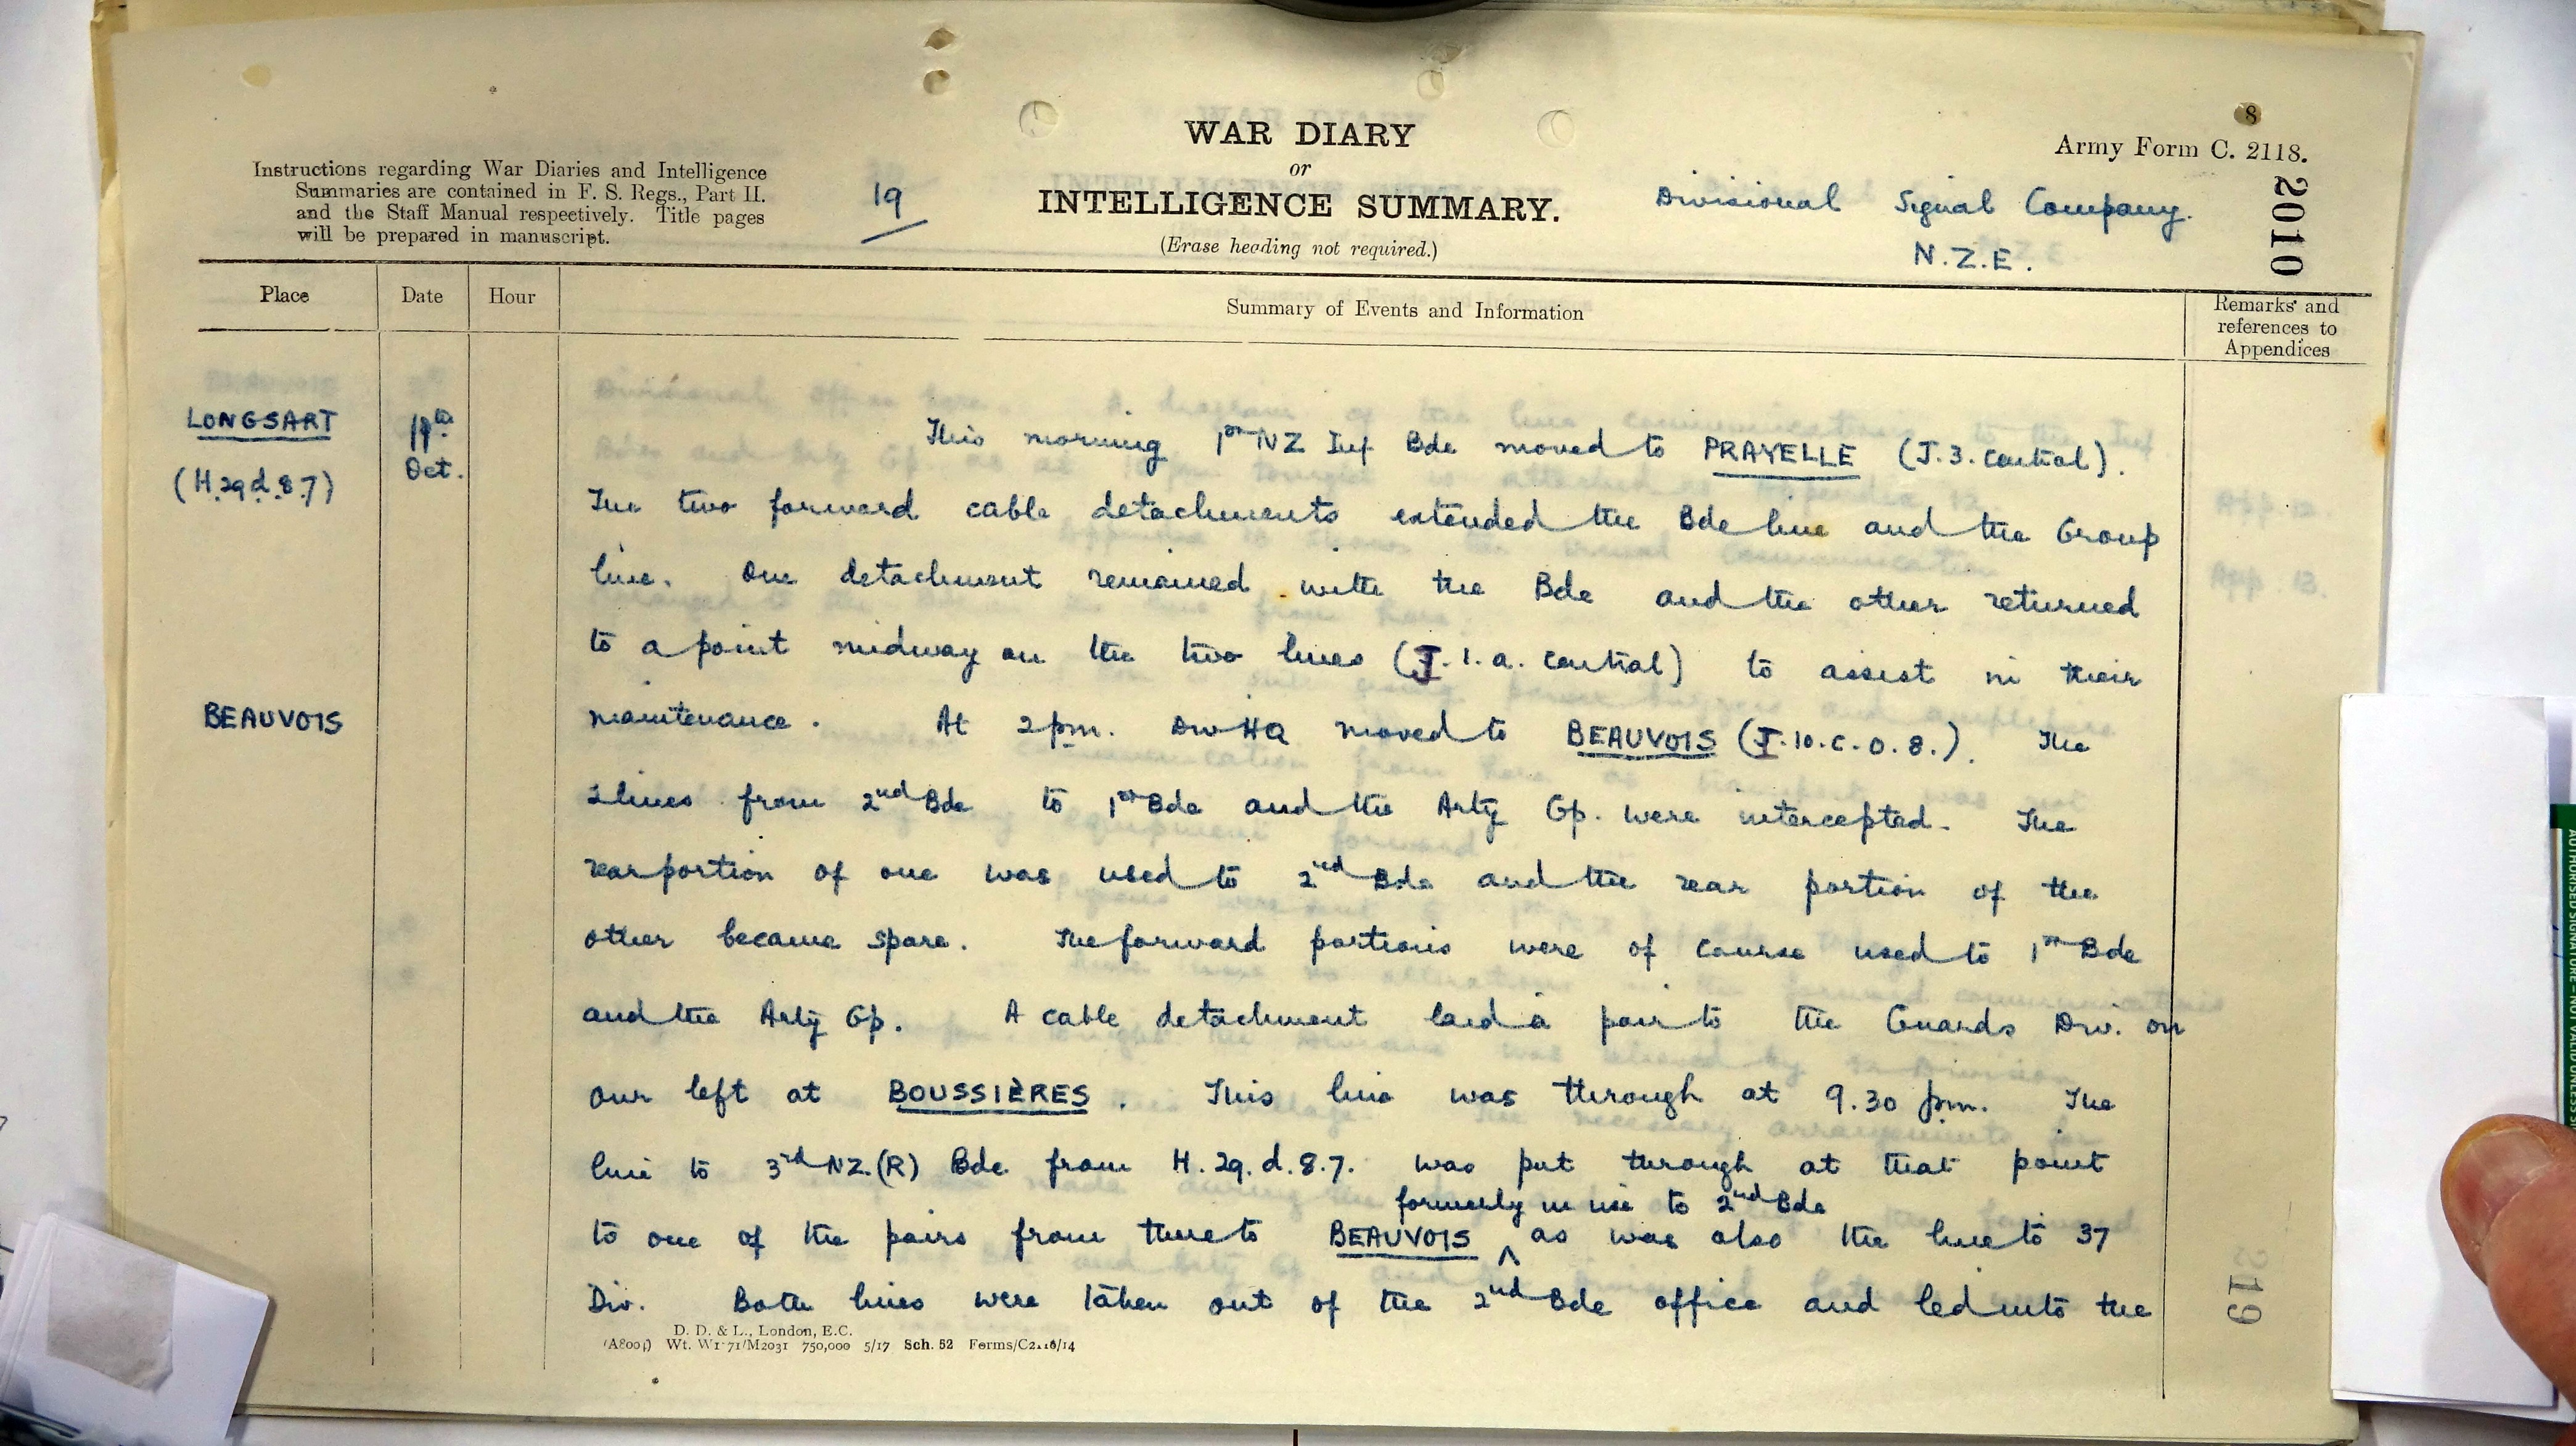 8
WAR DIARY
or
INTELLIGENCE SUMMARY.
(Erase heading not required.)
Army Form C. 2118.
Instructions regarding War Diaries and Intelligence
Summaries are contained in F. S. Regs., Part II.
and the Staff Manual respectively. Title pages
will be prepared in manuscript.
19
Divisional Signal Company.
N.Z.E.
2010
Place Date Hour Summary of Events and Information Remarks and references to Appendices
LONGSART
(H.29.d.8.7)
Oct.
This morning 1st NZ Inf Bde moved to PRAYELLE (J.3.central).
The two forward cable detachments extended the Bde line and the Group
line. One detachment remained with the Bde and the other returned
to a point midway on the two lines (J.1.a. central) to assist in their
BEAUVOIS
maintenance. At 2pm. Div HQ moved to BEAUVOIS (J.10.c.0.8.). The
2 lines from 2nd Bde to 1st Bde and the Arty Gp. were intercepted. The
rear portion of one was used to 2nd Bde and the rear portion of the
other became spare. The forward portions were of course used to 1st Bde
and the Arty Gp. A cable detachment laid a pair to the Guards Div. on
our left at BOUSSIÈRES. This line was through at 9.30 pm. The
line to 3rd NZ.(R) Bde from H.29.d.8.7. was put through at that point
formerly in use to 2nd Bde
to one of the pairs from there to BEAUVOIS ^ as was also the line to 37
Div. Both lines were taken out of the 2nd Bde office and led into the
D. D. & L., London, E.C.
Wt. W1771/M2031 750,000 5/17 Sch. 52 Forms/C2118/14
19
AUTHORISED SIGNATURE – NOT VALID UNLESS